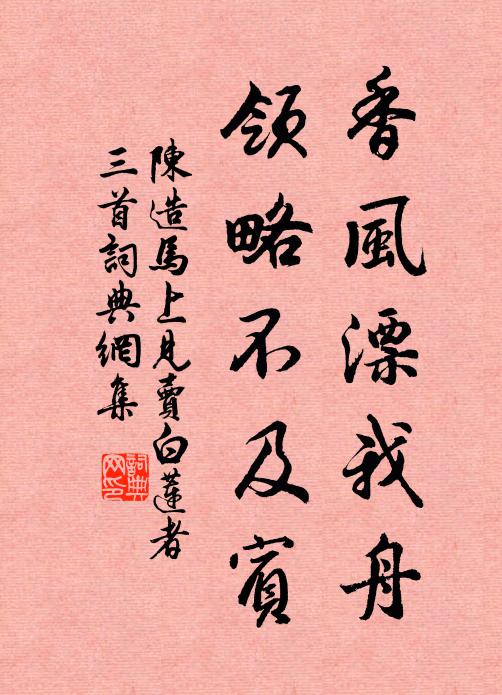 香風漂我舟
領略不及賓
陳造馬上見賣白蓮者
三首詞典網集
詞典
网印